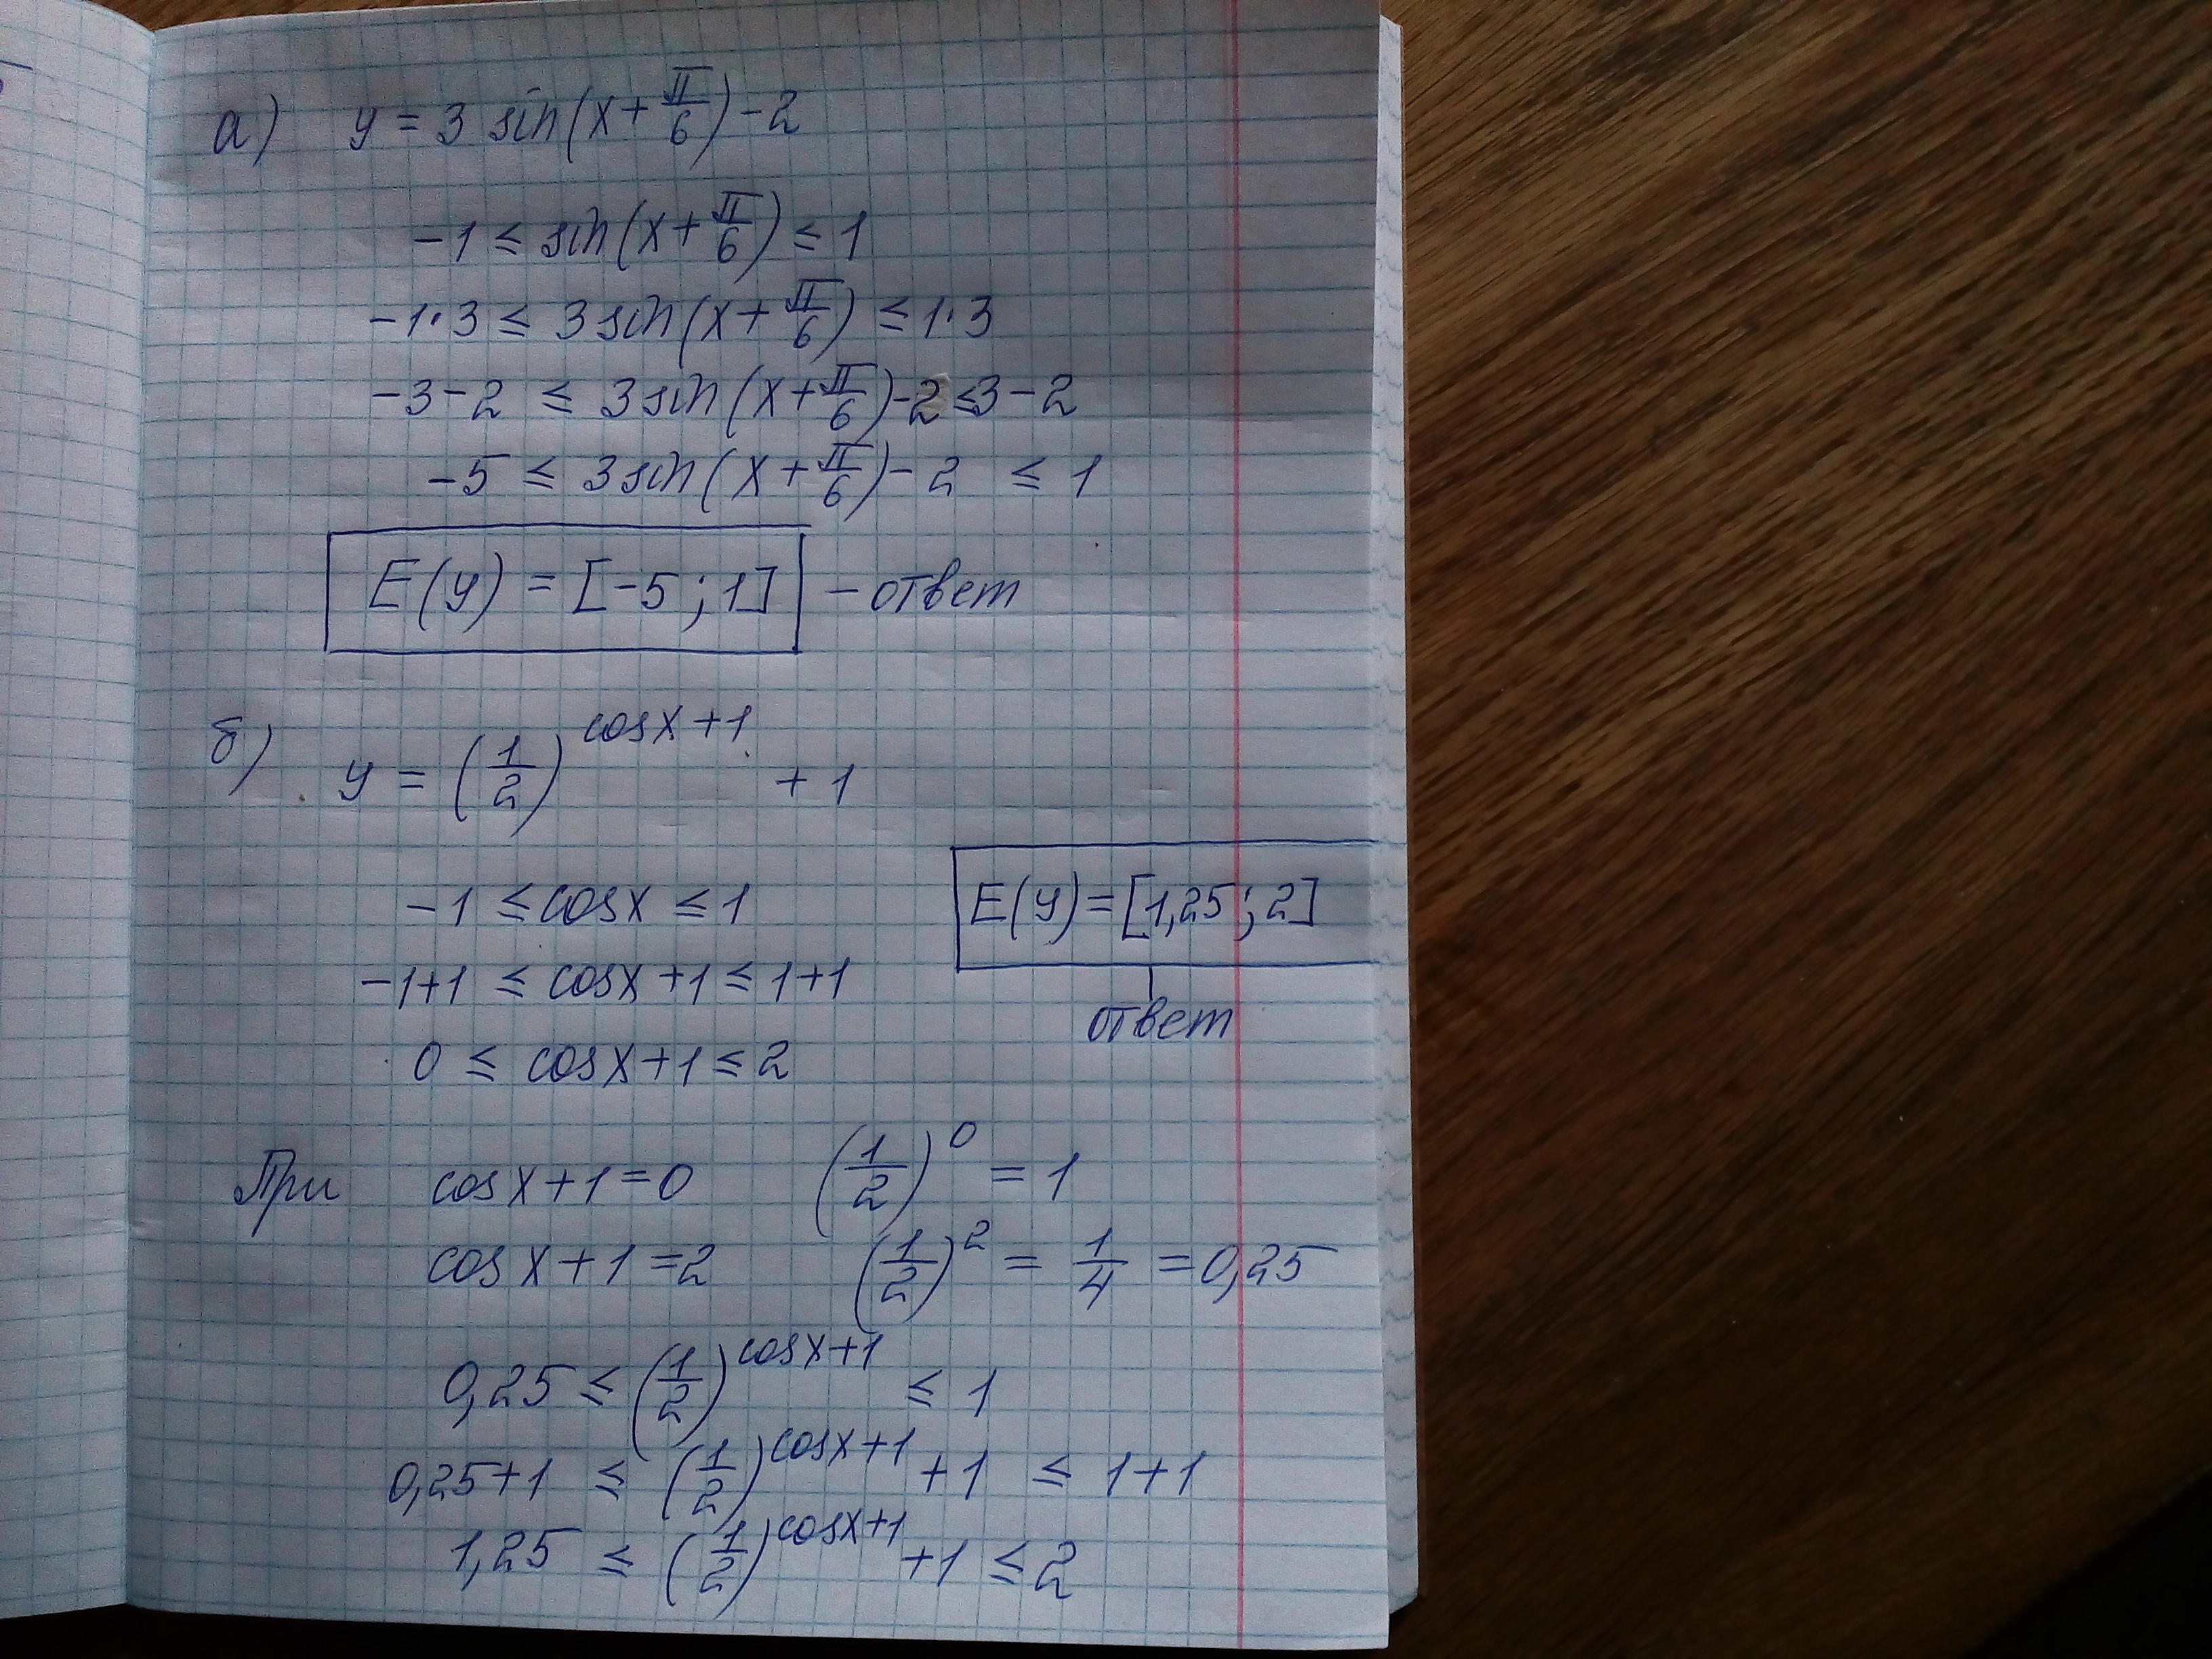 а) y = 3 sin(x + π/6) - 2
-1 ≤ sin(x + π/6) ≤ 1
-1·3 ≤ 3 sin(x + π/6) ≤ 1·3
-3-2 ≤ 3 sin(x + π/6) - 2 ≤ 3-2
-5 ≤ 3 sin(x + π/6) - 2 ≤ 1
E(y) = [-5; 1] - ответ
б) y = (1/2)^(cosx+1) + 1
-1 ≤ cosx ≤ 1
E(y) = [1,25; 2]
-1+1 ≤ cosx+1 ≤ 1+1
ответ
0 ≤ cosx+1 ≤ 2
При cosx+1=0 (1/2)^0 = 1
cosx+1=2 (1/2)^2 = 1/4 = 0,25
0,25 ≤ (1/2)^(cosx+1) ≤ 1
0,25+1 ≤ (1/2)^(cosx+1) + 1 ≤ 1+1
1,25 ≤ (1/2)^(cosx+1) + 1 ≤ 2